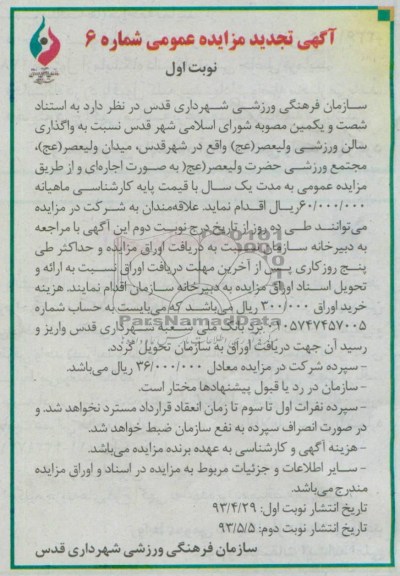 آگهی تجدید مزایده عمومی شماره ۶
نوبت اول
سازمان فرهنگی ورزشی شهرداری قدس در نظر دارد به استناد
شصت و یکمین مصوبه شورای اسلامی شهر قدس نسبت به واگذاری
سالن ورزشی ولیعصر(عج) واقع در شهرقدس، میدان ولیعصر(عج)،
مجتمع ورزشی حضرت ولیعصر(عج( به صورت اجاره‌ای و از طریق
مزایده عمومی به مدت یک سال با قیمت پایه کارشناسی ماهیانه
۶۰/۰۰۰/۰۰۰ریال اقدام نماید. علاقه‌مندان به شرکت در مزایده
می‌توانند طی ده روز از تاریخ درج نوبت دوم این آگهی با مراجعه
به دبیرخانه سازمان نسبت به دریافت اوراق مزایده و حداکثر طی
پنج روز کاری پس از آخرین مهلت دریافت اوراق نسبت به ارائه و
تحویل اسناد اوراق مزایده به دبیرخانه سازمان اقدام نمایند. هزینه
خرید اوراق ۳۰۰/۰۰۰ ریال می‌باشد که می‌بایست به حساب شماره
نزد بانک ملی شهرداری قدس واریز و
رسید آن جهت دریافت اوراق به سازمان تحویل گردد.
- سپرده شرکت در مزایده معادل ۳۶/۰۰۰/۰۰۰ ریال می‌باشد.
- سازمان در رد یا قبول پیشنهادها مختار است.
- سپرده نفرات اول تا سوم تا زمان انعقاد قرارداد مسترد نخواهد شد. و
در صورت انصراف سپرده به نفع سازمان ضبط خواهد شد.
- هزینه آگهی و کارشناسی به عهده برنده مزایده می‌باشد.
- سایر اطلاعات و جزئیات مربوط به مزایده در اسناد و اوراق مزایده
مندرج می‌باشد.
تاریخ انتشار نوبت اول: ۹۳/۴/۲۹
تاریخ انتشار نوبت دوم: ۹۳/۵/۵
سازمان فرهنگی ورزشی شهرداری قدس
ParsNamadData